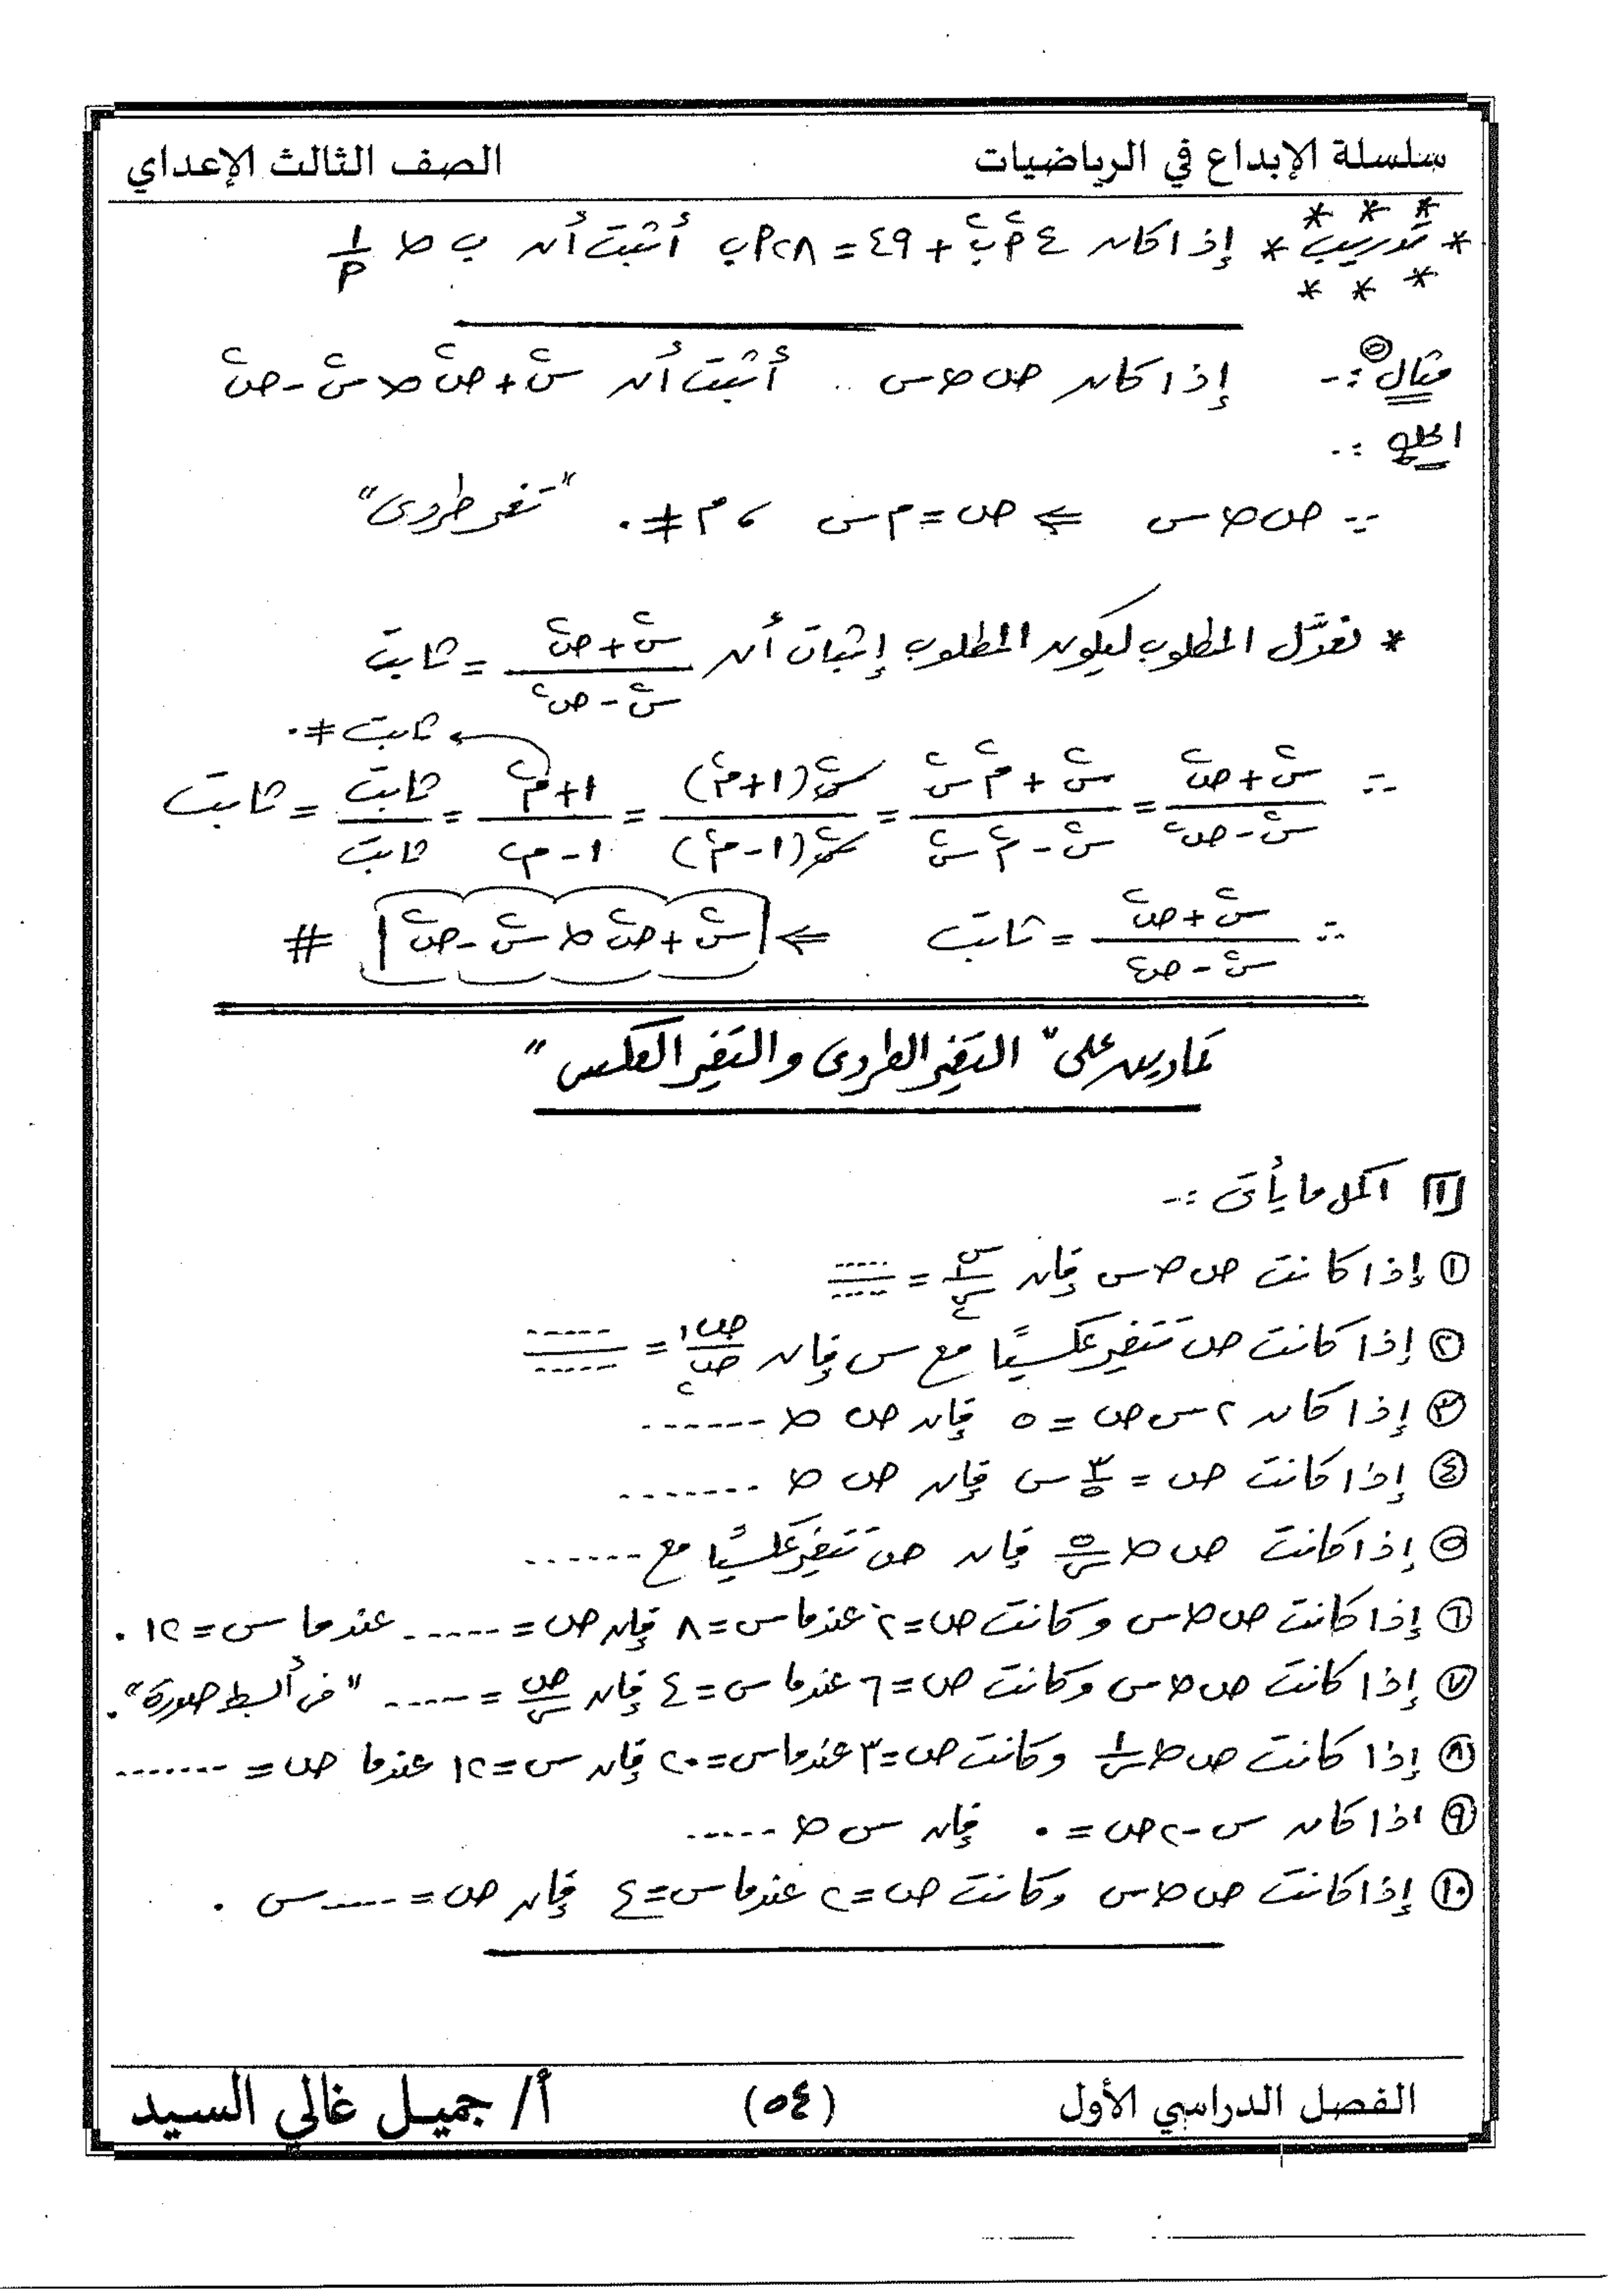 سلسلة الإبداع في الرياضيات الصف الثالث الإعداي
* تدريب * إذا كان ٤أ٢ب٢ + ٤٩ = ٢٨أب أثبت أن ب ∝ ١/أ
مثال :- إذا كان ص ∝ س .. أثبت أن س٢ + ص٢ ∝ س٢ - ص٢
الحل :-
∵ ص ∝ س ⇐ ص = م س ، م ≠ ٠ "تغير طردى"
* نعدَّل المطلوب ليكون المطلوب إثبات أن (س٢ + ص٢)/(س٢ - ص٢) = ثابت
ثابت ≠ ٠
∴ (س٢ + ص٢)/(س٢ - ص٢) = (س٢ + م٢س٢)/(س٢ - م٢س٢) = س٢(١ + م٢)/س٢(١ - م٢) = (١ + م٢)/(١ - م٢) = ثابت/ثابت = ثابت
∴ (س٢ + ص٢)/(س٢ - ص٢) = ثابت ⇐ س٢ + ص٢ ∝ س٢ - ص٢ #
تمارين على "التغير الطردى والتغير العكسى"
[١] اكمل ما يأتى :-
(١) إذا كانت ص ∝ س فإن س١/س٢ = ...../.....
(٢) إذا كانت ص تتغير عكسيًا مع س فإن ص١/ص٢ = ...../.....
(٣) إذا كان ٢ س ص = ٥ فإن ص ∝ .......
(٤) إذا كانت ص = ٣/٥ س فإن ص ∝ .......
(٥) إذا كانت ص ∝ ٥/س فإن ص تتغير عكسيًا مع .......
(٦) إذا كانت ص ∝ س وكانت ص = ٢ عندما س = ٨ فإن ص = ...... عندما س = ١٢ .
(٧) إذا كانت ص ∝ س وكانت ص = ٦ عندما س = ٤ فإن ص/س = ..... "فى أبسط صورة" .
(٨) إذا كانت ص ∝ ١/س وكانت ص = ٣ عندما س = ٢٠ فإن س = ١٢ عندما ص = .......
(٩) اذا كان س - ٢ص = ٠ فإن س ∝ .....
(١٠) إذا كانت ص ∝ س وكانت ص = ٢ عندما س = ٤ فإن ص = .....س .
الفصل الدراسي الأول (٥٤) أ/ جميل غالي السيد